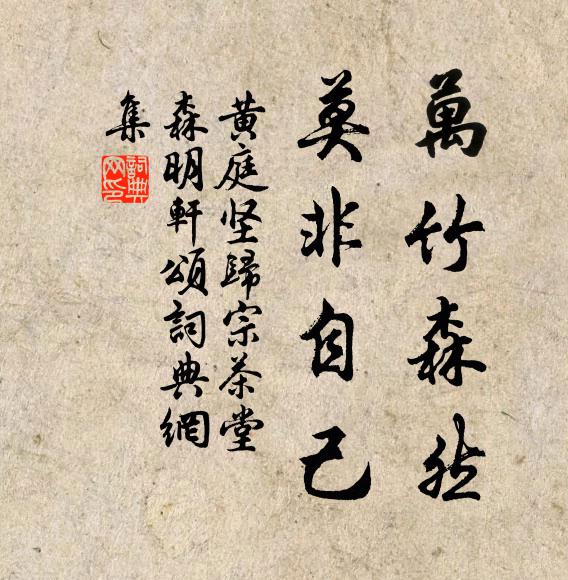 萬竹森然
莫非自己
黄庭坚歸宗茶堂
森明軒頌詞典網
集
詞典
网印